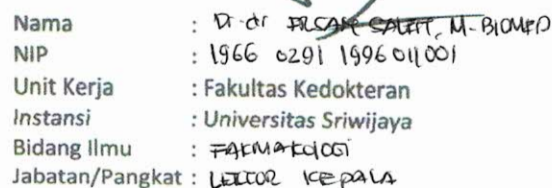 Nama : Dr. dr M-BIOMED
NIP : 1966 0291 1996011001
Unit Kerja : Fakultas Kedokteran
Instansi : Universitas Sriwijaya
Bidang Ilmu : FARMAKOLOGI
Jabatan/Pangkat : LEKTOR KEPALA